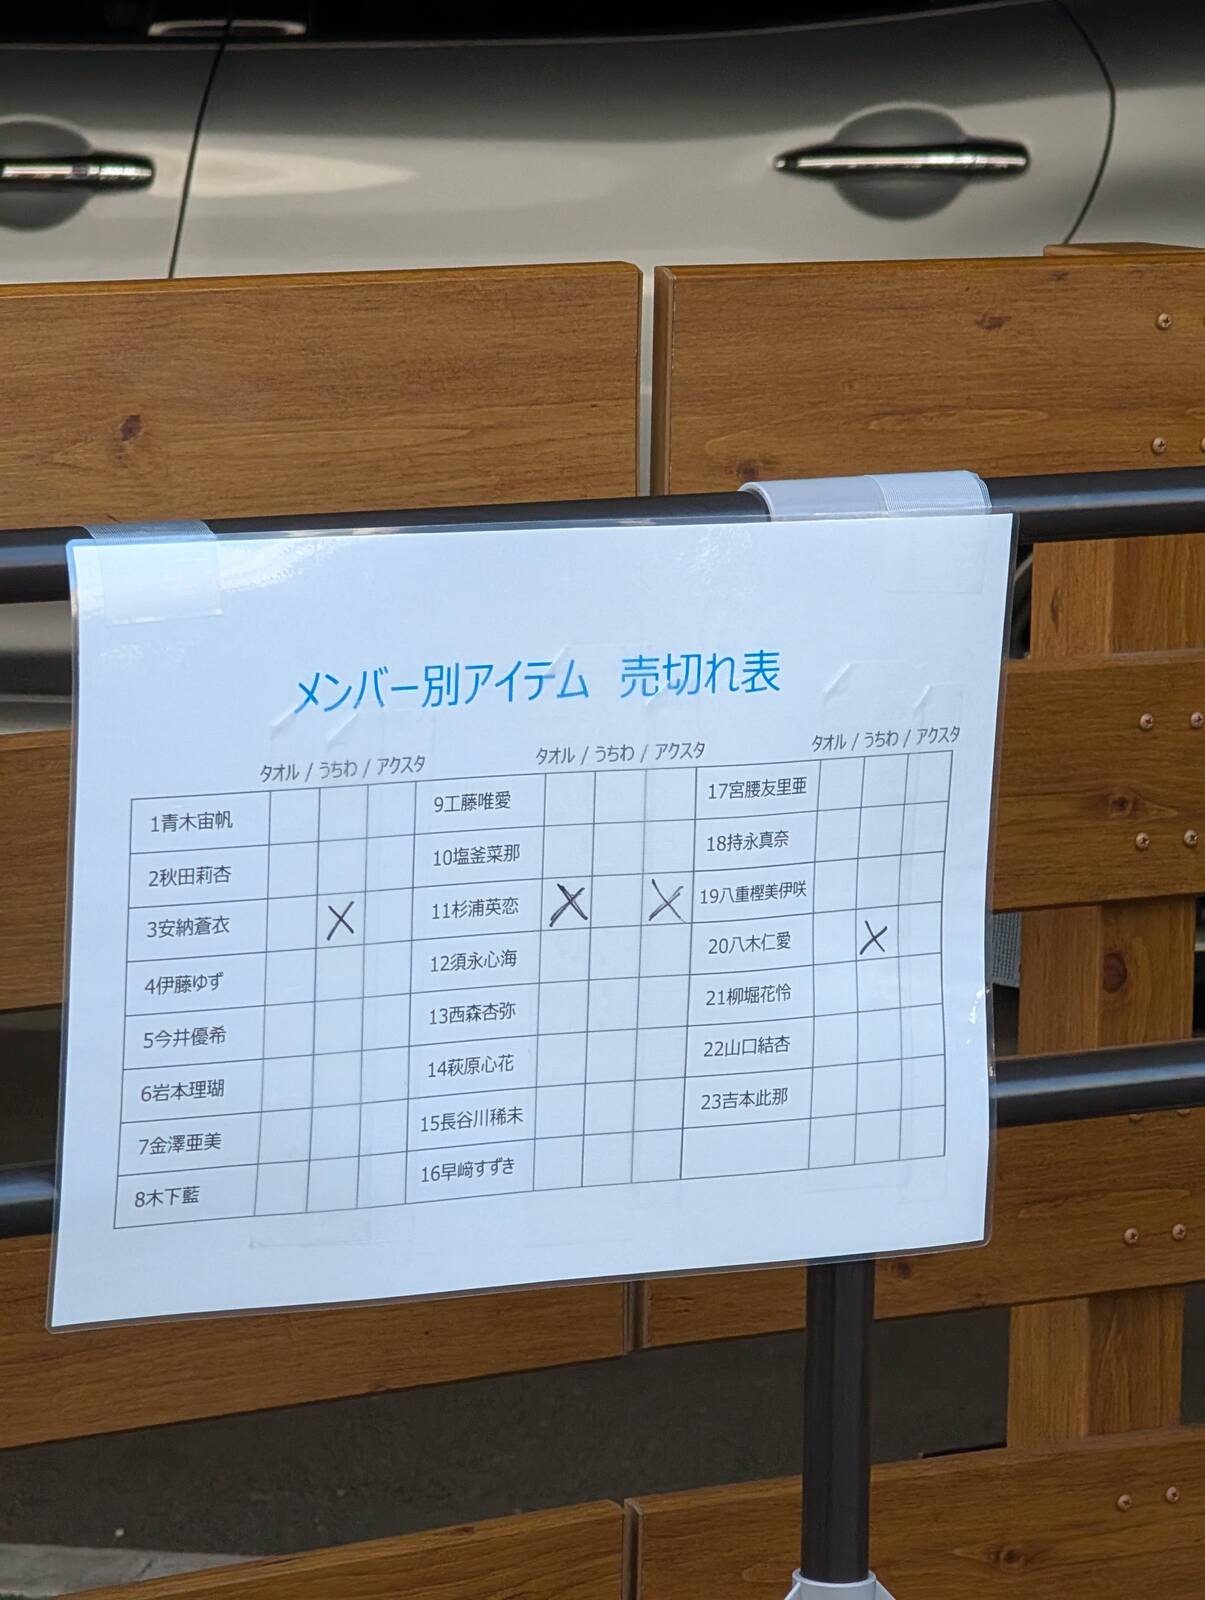 メンバー別アイテム 売切れ表
タオル / うちわ / アクスタ
1青木宙帆
2秋田莉杏
3安納蒼衣 X
4伊藤ゆず
5今井優希
6岩本理瑚
7金澤亜美
8木下藍
タオル / うちわ / アクスタ
9工藤唯愛
10塩釜菜那
11杉浦英恋 X X
12須永心海
13西森杏弥
14萩原心花
15長谷川稀未
16早﨑すずき
タオル / うちわ / アクスタ
17宮腰友里亜
18持永真奈
19八重樫美伊咲
20八木仁愛 X
21柳堀花怜
22山口結杏
23吉本此那